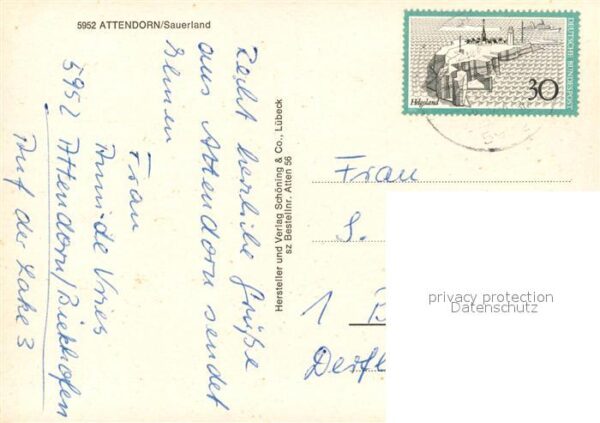 5952 ATTENDORN/Sauerland
Recht herzliche Grüße
aus Attendorn sendet
Ihnen
Frau
Anni de Vries
5952 Attendorn/Biekhofen
Auf der Lake 3
Hersteller und Verlag Schöning & Co., Lübeck
sz Bestellnr. Atten 56
Helgoland
30
DEUTSCHE BUNDESPOST
Frau
S.
1 B
Derfl
privacy protection
Datenschutz